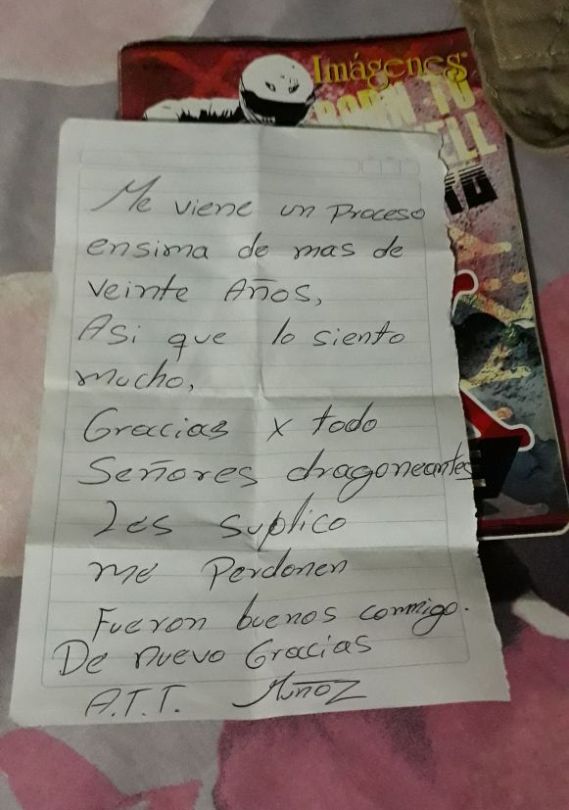 Imágenes
BORN TO
ELL
Me viene un Proceso
ensima de mas de
veinte Años,
Asi que lo siento
mucho,
Gracias x todo
Señores dragoneantes
Les suplico
me Perdonen
Fueron buenos conmigo.
De nuevo Gracias
A.T.T. Muñoz